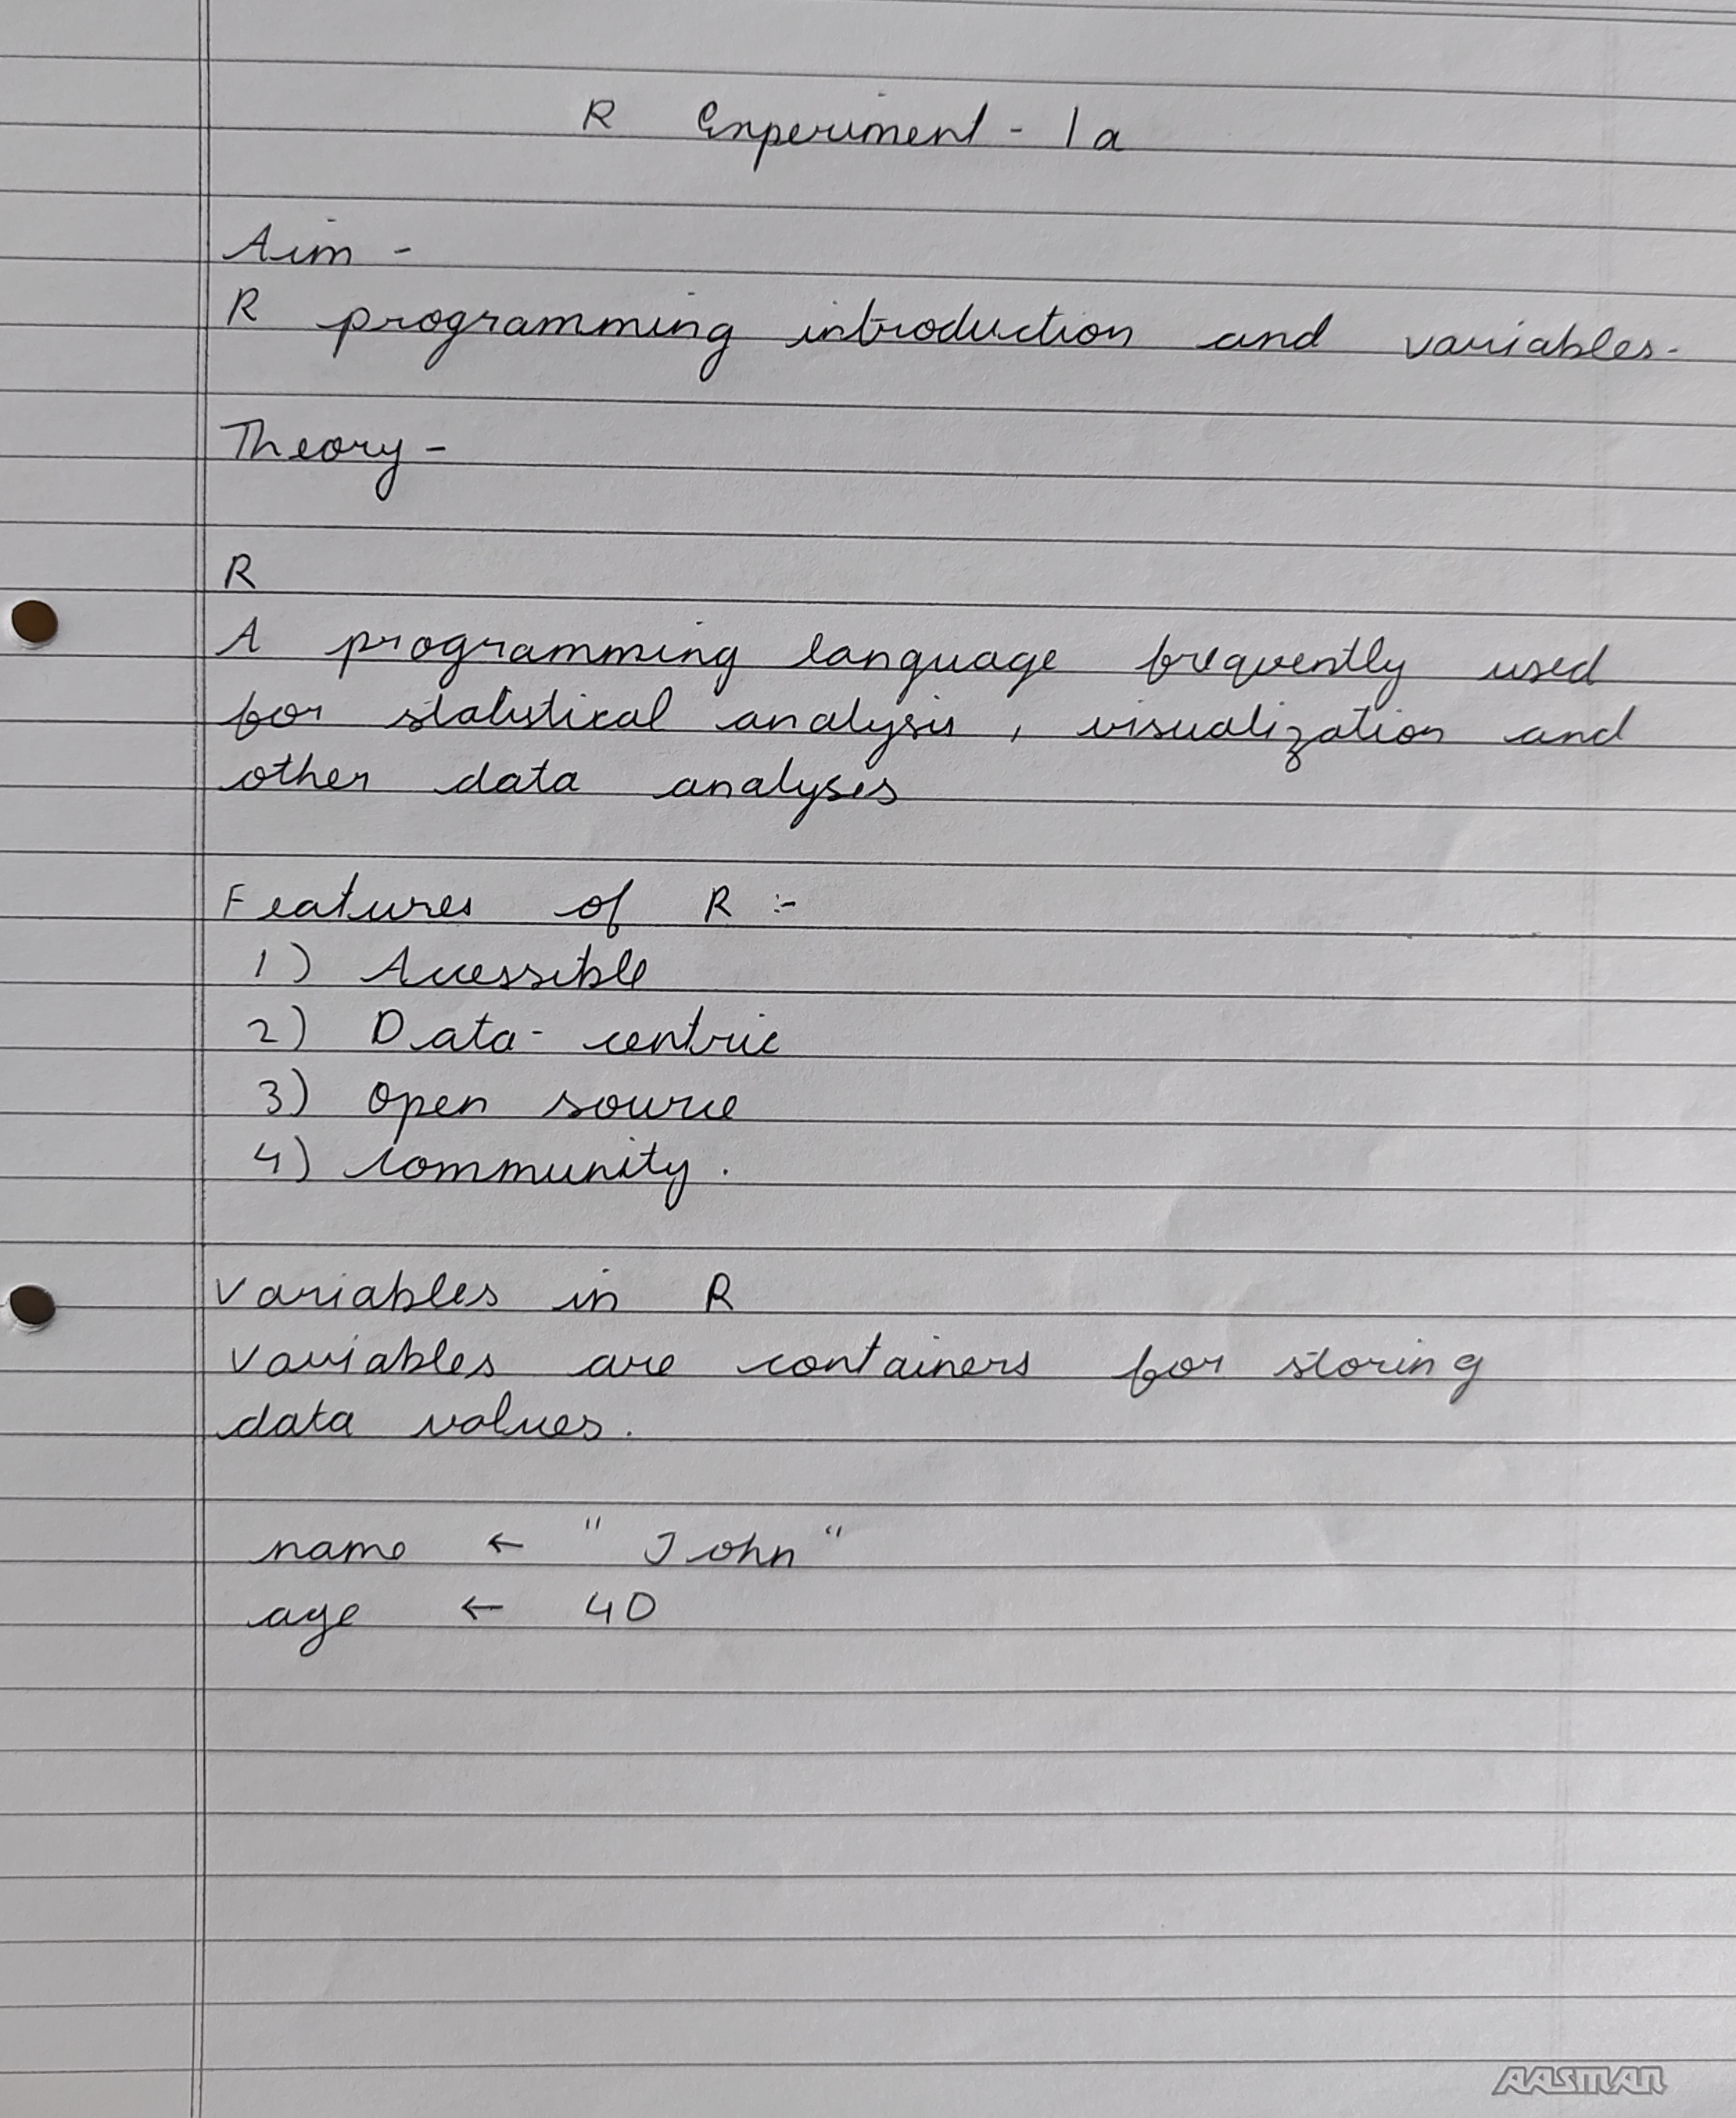 R Experiment - 1a
Aim -
R programming introduction and variables.
Theory -
R
A programming language frequently used
for statistical analysis, visualization and
other data analyses
Features of R :-
1) Acessible
2) Data-centric
3) Open source
4) Community.
Variables in R
Variables are containers for storing
data values.
name ← "John"
age ← 40
AASMAN